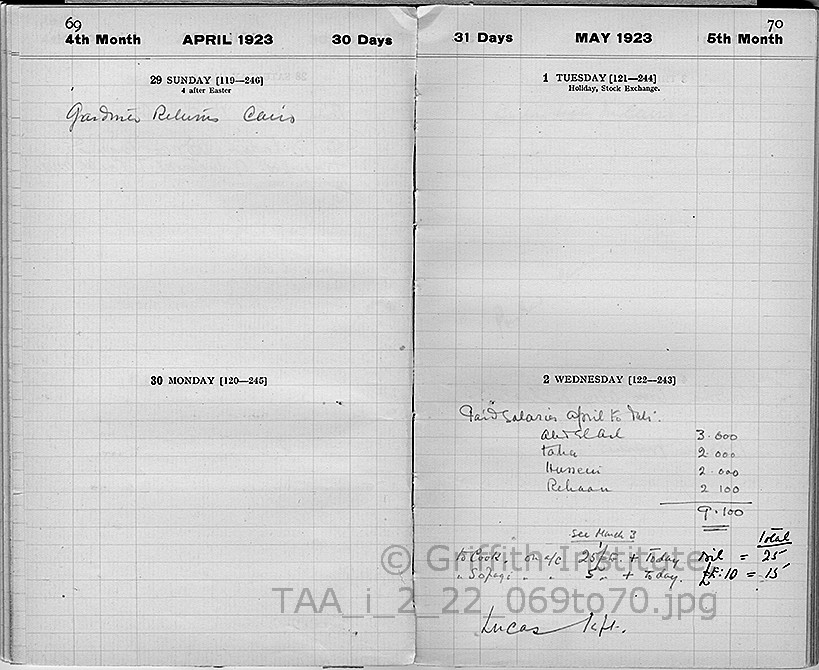 69
4th Month APRIL 1923 30 Days
29 SUNDAY [119—246]
4 after Easter
Gardiner Returns Cairo
30 MONDAY [120—245]
70
31 Days MAY 1923 5th Month
1 TUESDAY [121—244]
Holiday, Stock Exchange.
2 WEDNESDAY [122—243]
Paid Salaries April to
3.000
Taha 2.000
Hussein 2.000
Rehaan 2 100
9.100
See March 3
Total
to Cook on a/c 25 + Today nil = 25
" " " 5 " + Today. £E:10 = 15
Lucas left.
© Griffith Institute
TAA_i_2_22_069to70.jpg